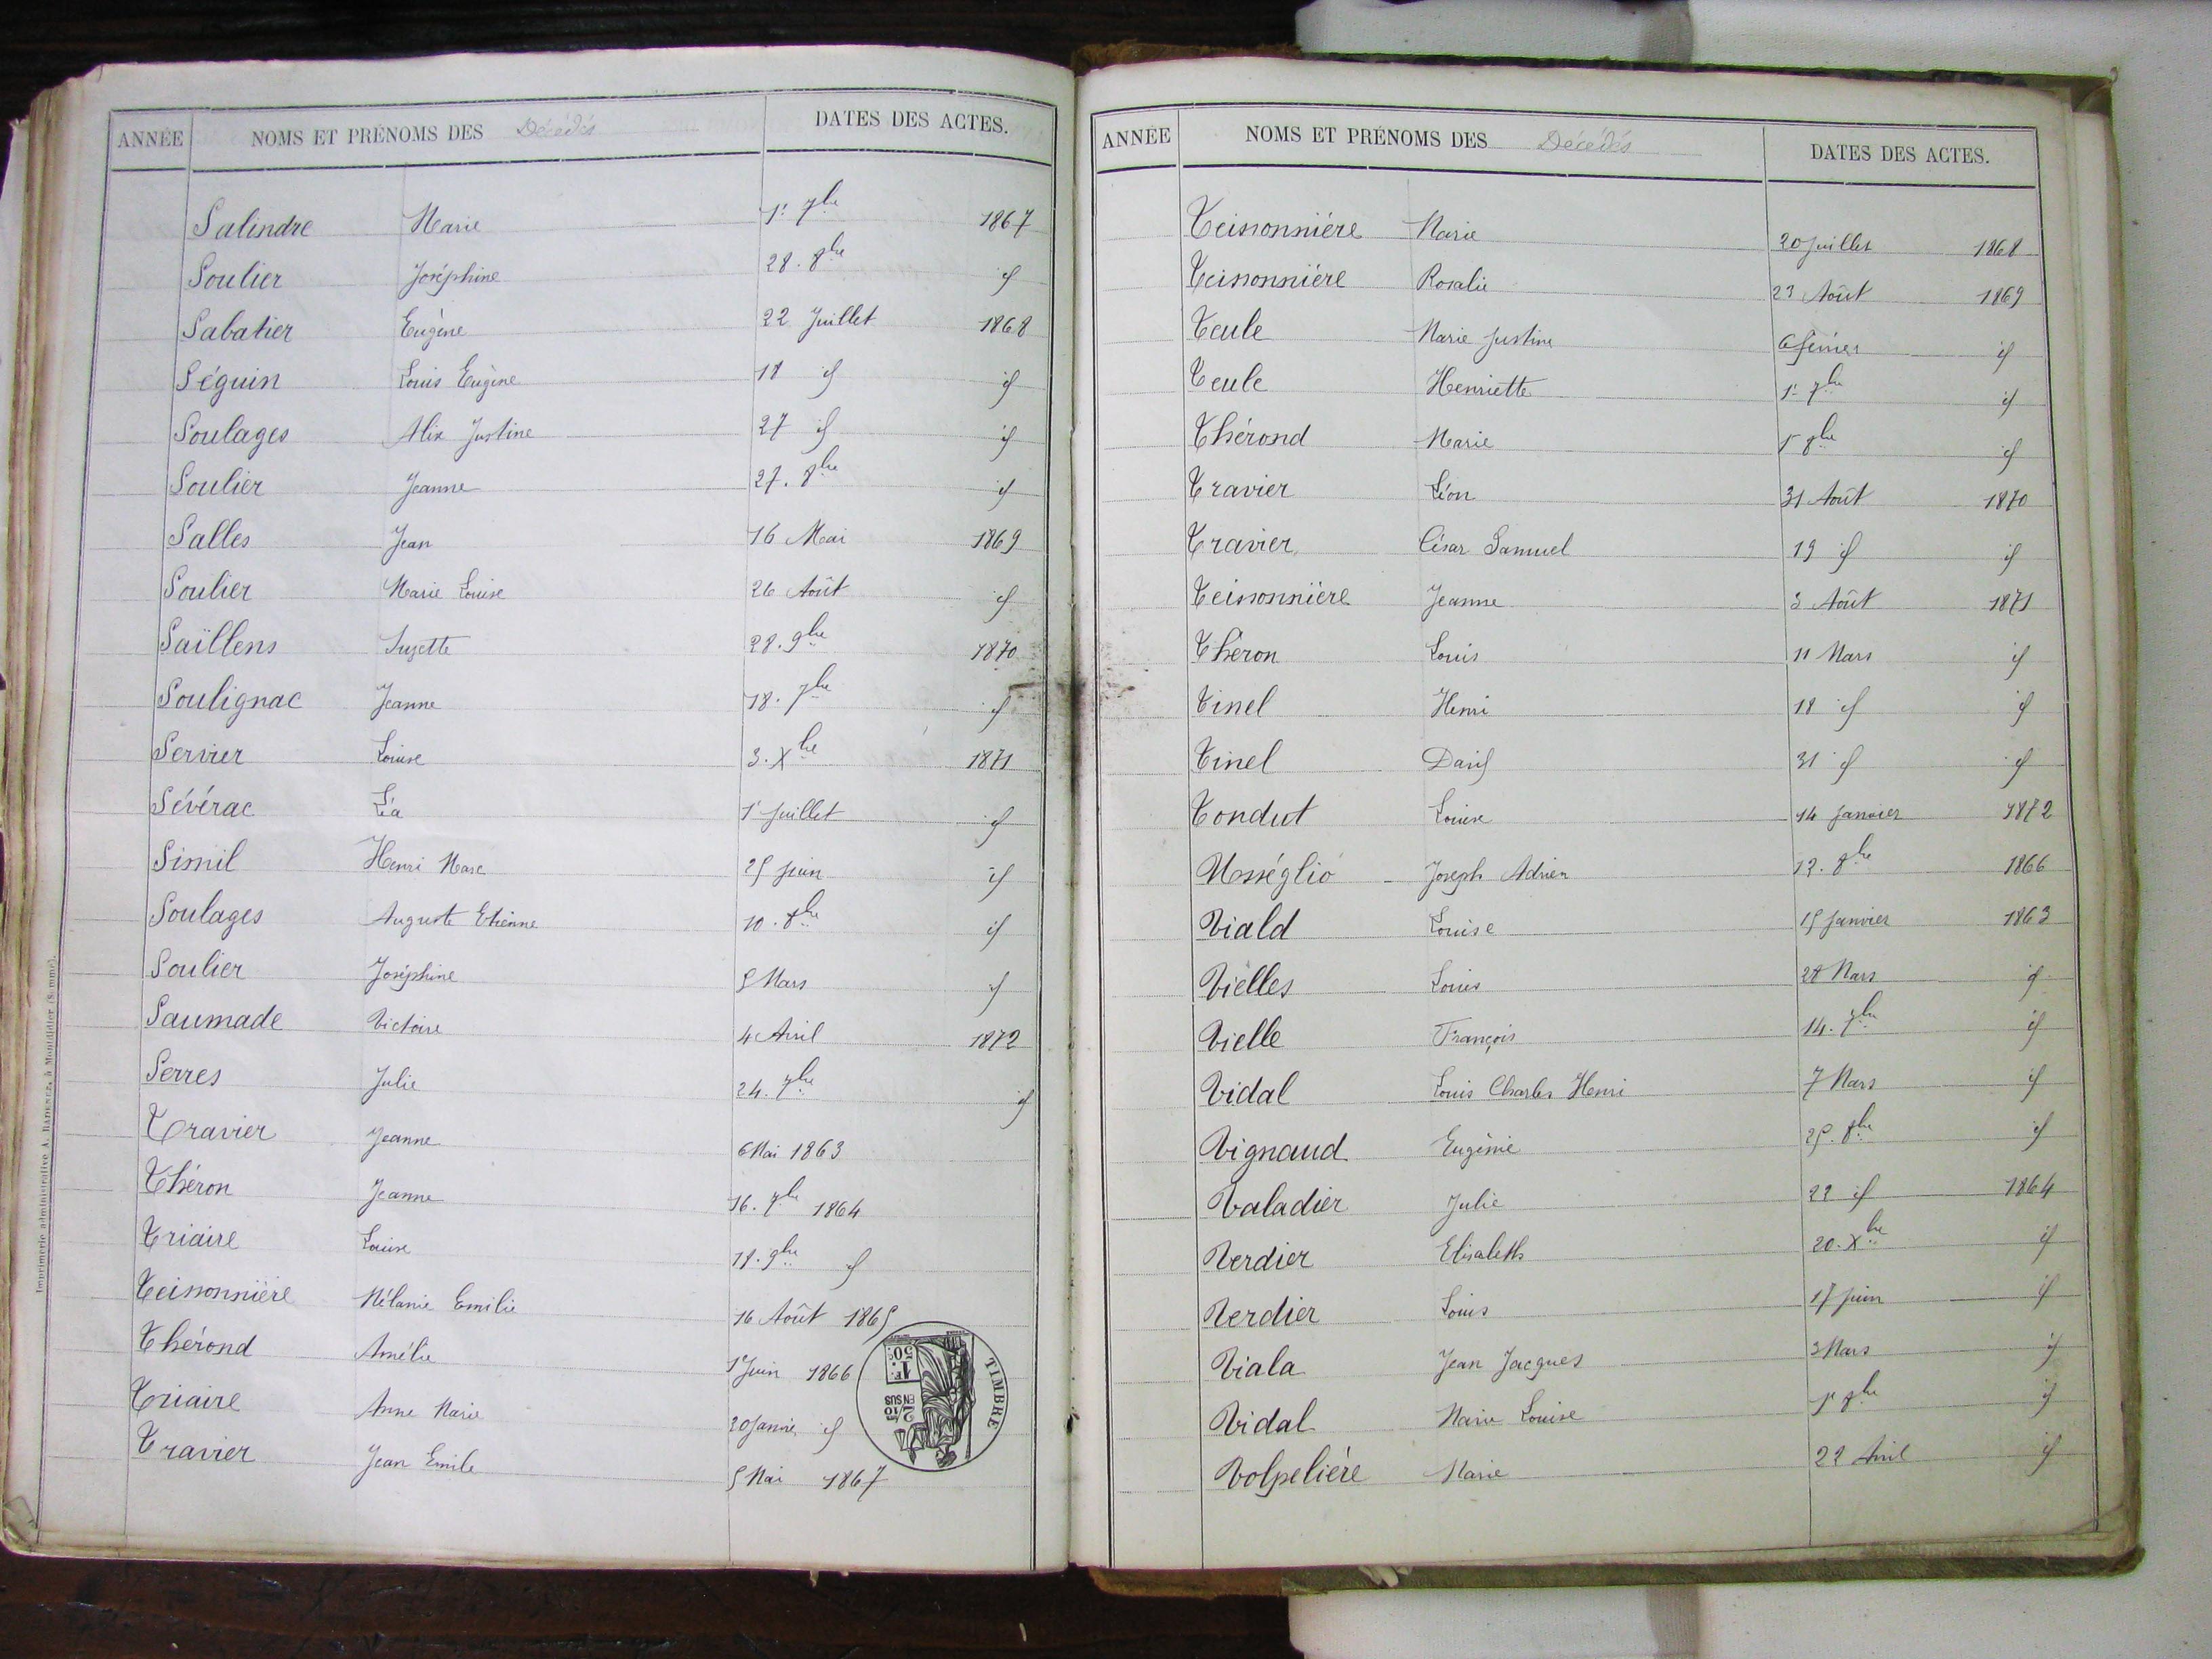 ANNÉE NOMS ET PRÉNOMS DES Décédés DATES DES ACTES.
Salindre Marie 1er 7bre 1867
Soulier Joséphine 28. 8bre id
Sabatier Eugène 22 Juillet 1868
Séguin Louis Eugène 18 id id
Soulages Alix Justine 27 id id
Soulier Jeanne 27. 8bre id
Salles Jean 16 Mai 1869
Soulier Marie Louise 26 Août id
Saïllens Suzette 28. 9bre 1870
Soulignac Jeanne 18. 7bre id
Servier Louise 3. Xbre 1871
Sévérac Léa 1er juillet id
Simil Henri Marc 25 juin id
Soulages Auguste Etienne 10. 8bre id
Soulier Joséphine 5 Mars id
Saumade Victoire 4 Avril 1872
Serres Julie 24. 7bre id
Travier Jeanne 6 Mai 1863
Théron Jeanne 16. 7bre 1864
Triaire Louise 18. 9bre id
Teissonnière Mélanie Emilie 16 Août 1865
Thérond Amélie 1er Juin 1866
Triaire Anne Marie 20 Janvier id
Travier Jean Emile 5 Mai 1867
TIMBRE
1F. 50c
2/10 EN SUS
Imprimerie administrative A. RADENEZ, à Montdidier (Somme).
ANNÉE NOMS ET PRÉNOMS DES Décédés DATES DES ACTES.
Teissonnière Marie 20 juillet 1868
Teissonnière Rosalie 23 Août 1869
Teule Marie Justine 6 février id
Teule Henriette 1er 7bre id
Thérond Marie 1er 8bre id
Travier Léon 31 Août 1870
Travier César Samuel 19 id id
Teissonnière Jeanne 3 Août 1871
Théron Louis 11 Mars id
Tinel Henri 18 id id
Tinel David 31 id id
Tondut Louise 14 janvier 1872
Usséglio Joseph Adrien 12. 8bre 1866
Viald Louise 15 janvier 1863
Vielles Louis 28 Mars id
Vielle François 14. 7bre id
Vidal Louis Charles Henri 7 Mars id
Vignaud Eugénie 25. 8bre id
Valadier Julie 22 id 1864
Verdier Elisabeth 20. Xbre id
Verdier Louis 17 juin id
Viala Jean Jacques 3 Mars id
Vidal Marie Louise 1er 8bre id
Volpelière Marie 22 Avril id